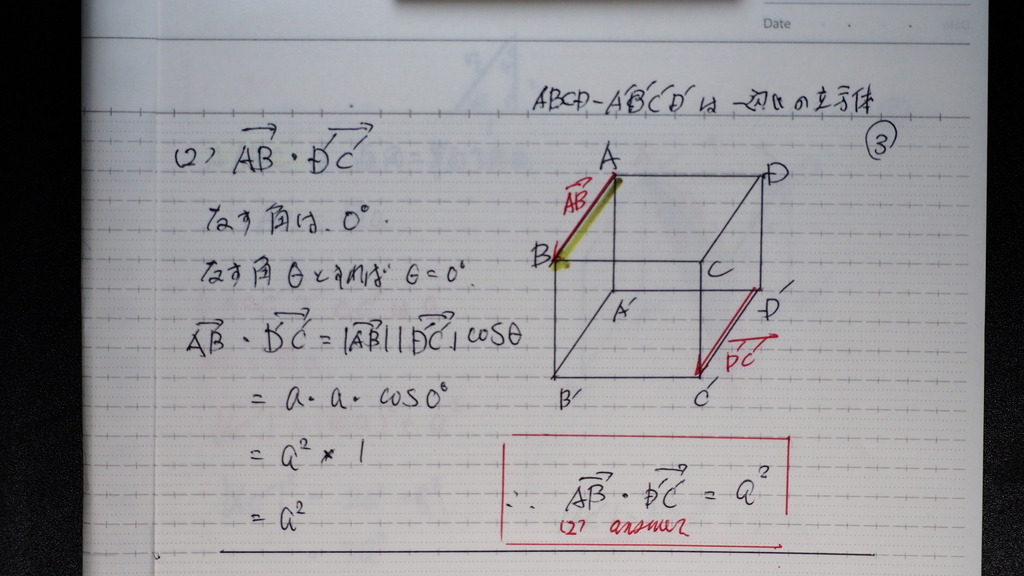 Date
ABCD-A'B'C'D'は一辺aの立方体
③
(2) AB・D'C'
なす角は、0°.
なす角θとすれば θ=0°.
AB・D'C' = |AB||D'C'| cosθ
= a・a・cos0°
= a² × 1
= a²
A
D
AB
B
C
A'
D'
D'C'
B'
C'
∴ AB・D'C' = a²
(2) answer